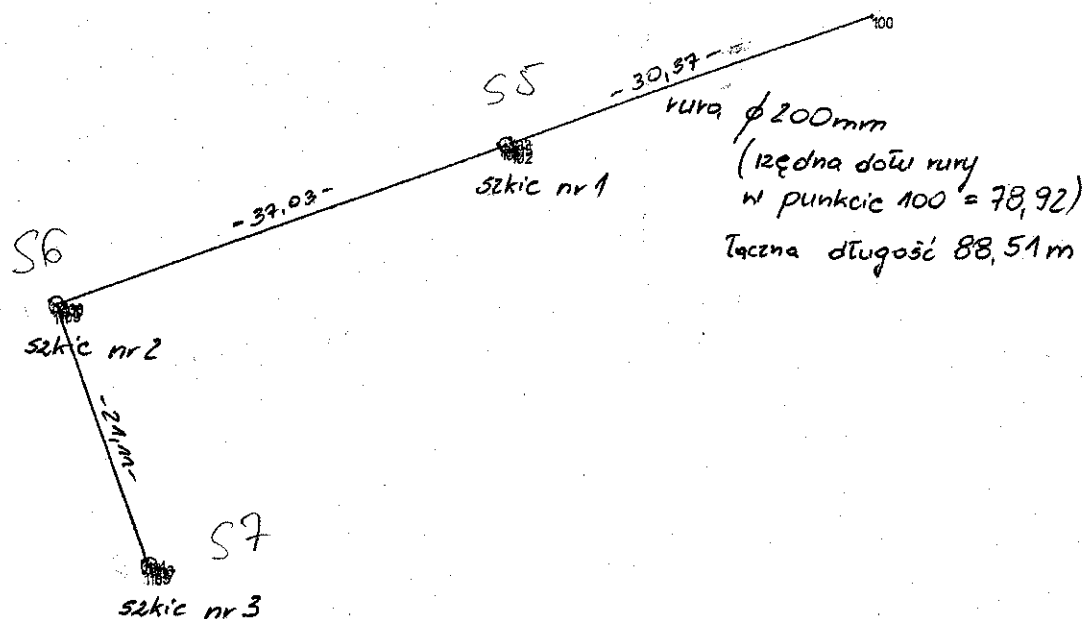 100
- 30,37 -
S5
rura ϕ 200mm
(rzędna dołu rury
w punkcie 100 = 78,92)
łączna długość 88,51 m
szkic nr 1
- 37,03 -
S6
szkic nr 2
- 21,11 -
S7
szkic nr 3